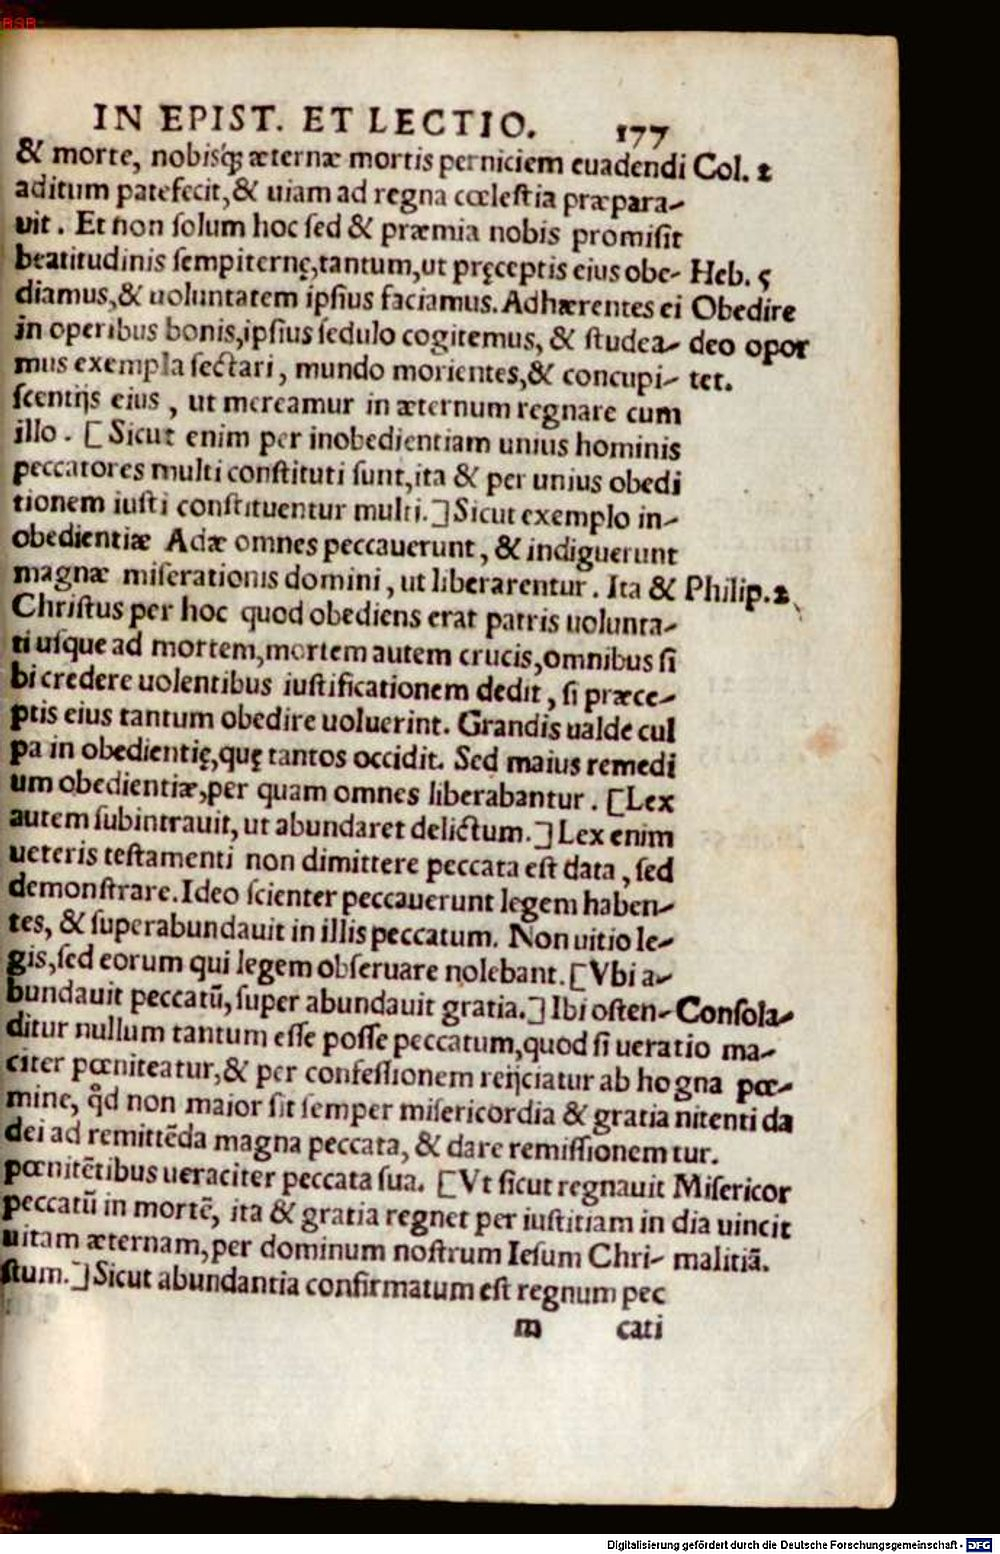 BSB
IN EPIST. ET LECTIO. 177
& morte, nobisq́ꝫ æternæ mortis perniciem euadendi Col. 2
aditum patefecit, & uiam ad regna cœleſtia præpara-
uit. Et non ſolum hoc ſed & præmia nobis promiſit
beatitudinis ſempiternę, tantum, ut pręceptis eius obe- Heb. 5
diamus, & uoluntatem ipſius faciamus. Adhærentes ei Obedire
in operibus bonis, ipſius ſedulo cogitemus, & ſtudea- deo opor
mus exempla ſectari, mundo morientes, & concupi- tet.
ſcentijs eius, ut mereamur in æternum regnare cum
illo. [Sicut enim per inobedientiam unius hominis
peccatores multi conſtituti ſunt, ita & per unius obedi
tionem iuſti conſtituentur multi.] Sicut exemplo in-
obedientiæ Adæ omnes peccauerunt, & indiguerunt
magnæ miſerationis domini, ut liberarentur. Ita & Philip. 2
Chriſtus per hoc quod obediens erat patris uolunta-
ti uſque ad mortem, mortem autem crucis, omnibus ſi
bi credere uolentibus iuſtificationem dedit, ſi præce-
ptis eius tantum obedire uoluerint. Grandis ualde cul
pa in obedientię, quę tantos occidit. Sed maius remedi
um obedientiæ, per quam omnes liberabantur. [Lex
autem ſubintrauit, ut abundaret delictum.] Lex enim
ueteris teſtamenti non dimittere peccata eſt data, ſed
demonſtrare. Ideo ſcienter peccauerunt legem haben-
tes, & ſuperabundauit in illis peccatum. Non uitio le-
gis, ſed eorum qui legem obſeruare nolebant. [Vbi a-
bundauit peccatū, ſuper abundauit gratia.] Ibi oſten- Conſola-
ditur nullum tantum eſſe poſſe peccatum, quod ſi ueratio ma-
citer pœniteatur, & per confeſſionem reijciatur ab hogna pœ-
mine, qͦd non maior ſit ſemper miſericordia & gratia nitenti da
dei ad remittēda magna peccata, & dare remiſſionem tur.
pœnitētibus ueraciter peccata ſua. [Vt ſicut regnauit Miſericor
peccatū in mortē, ita & gratia regnet per iuſtitiam in dia uincit
uitam æternam, per dominum noſtrum Ieſum Chri- malitiā.
ſtum.] Sicut abundantia confirmatum eſt regnum pec
m cati
Digitalisierung gefördert durch die Deutsche Forschungsgemeinschaft - DFG